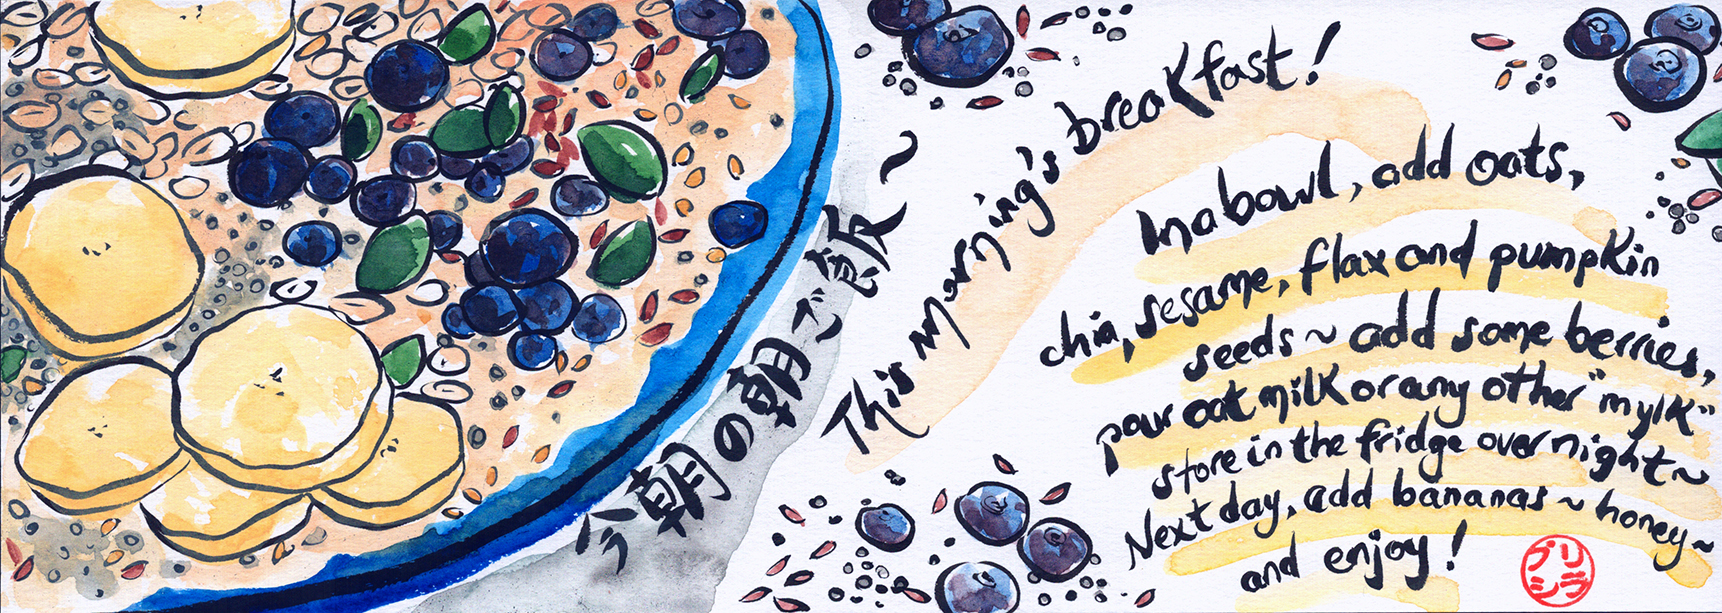 今朝の朝ご飯〜
This morning's breakfast!
In a bowl, add oats,
chia, sesame, flax and pumpkin
seeds ~ add some berries,
pour oat milk or any other "mylk"
store in the fridge overnight ~
Next day, add bananas ~ honey ~
and enjoy!